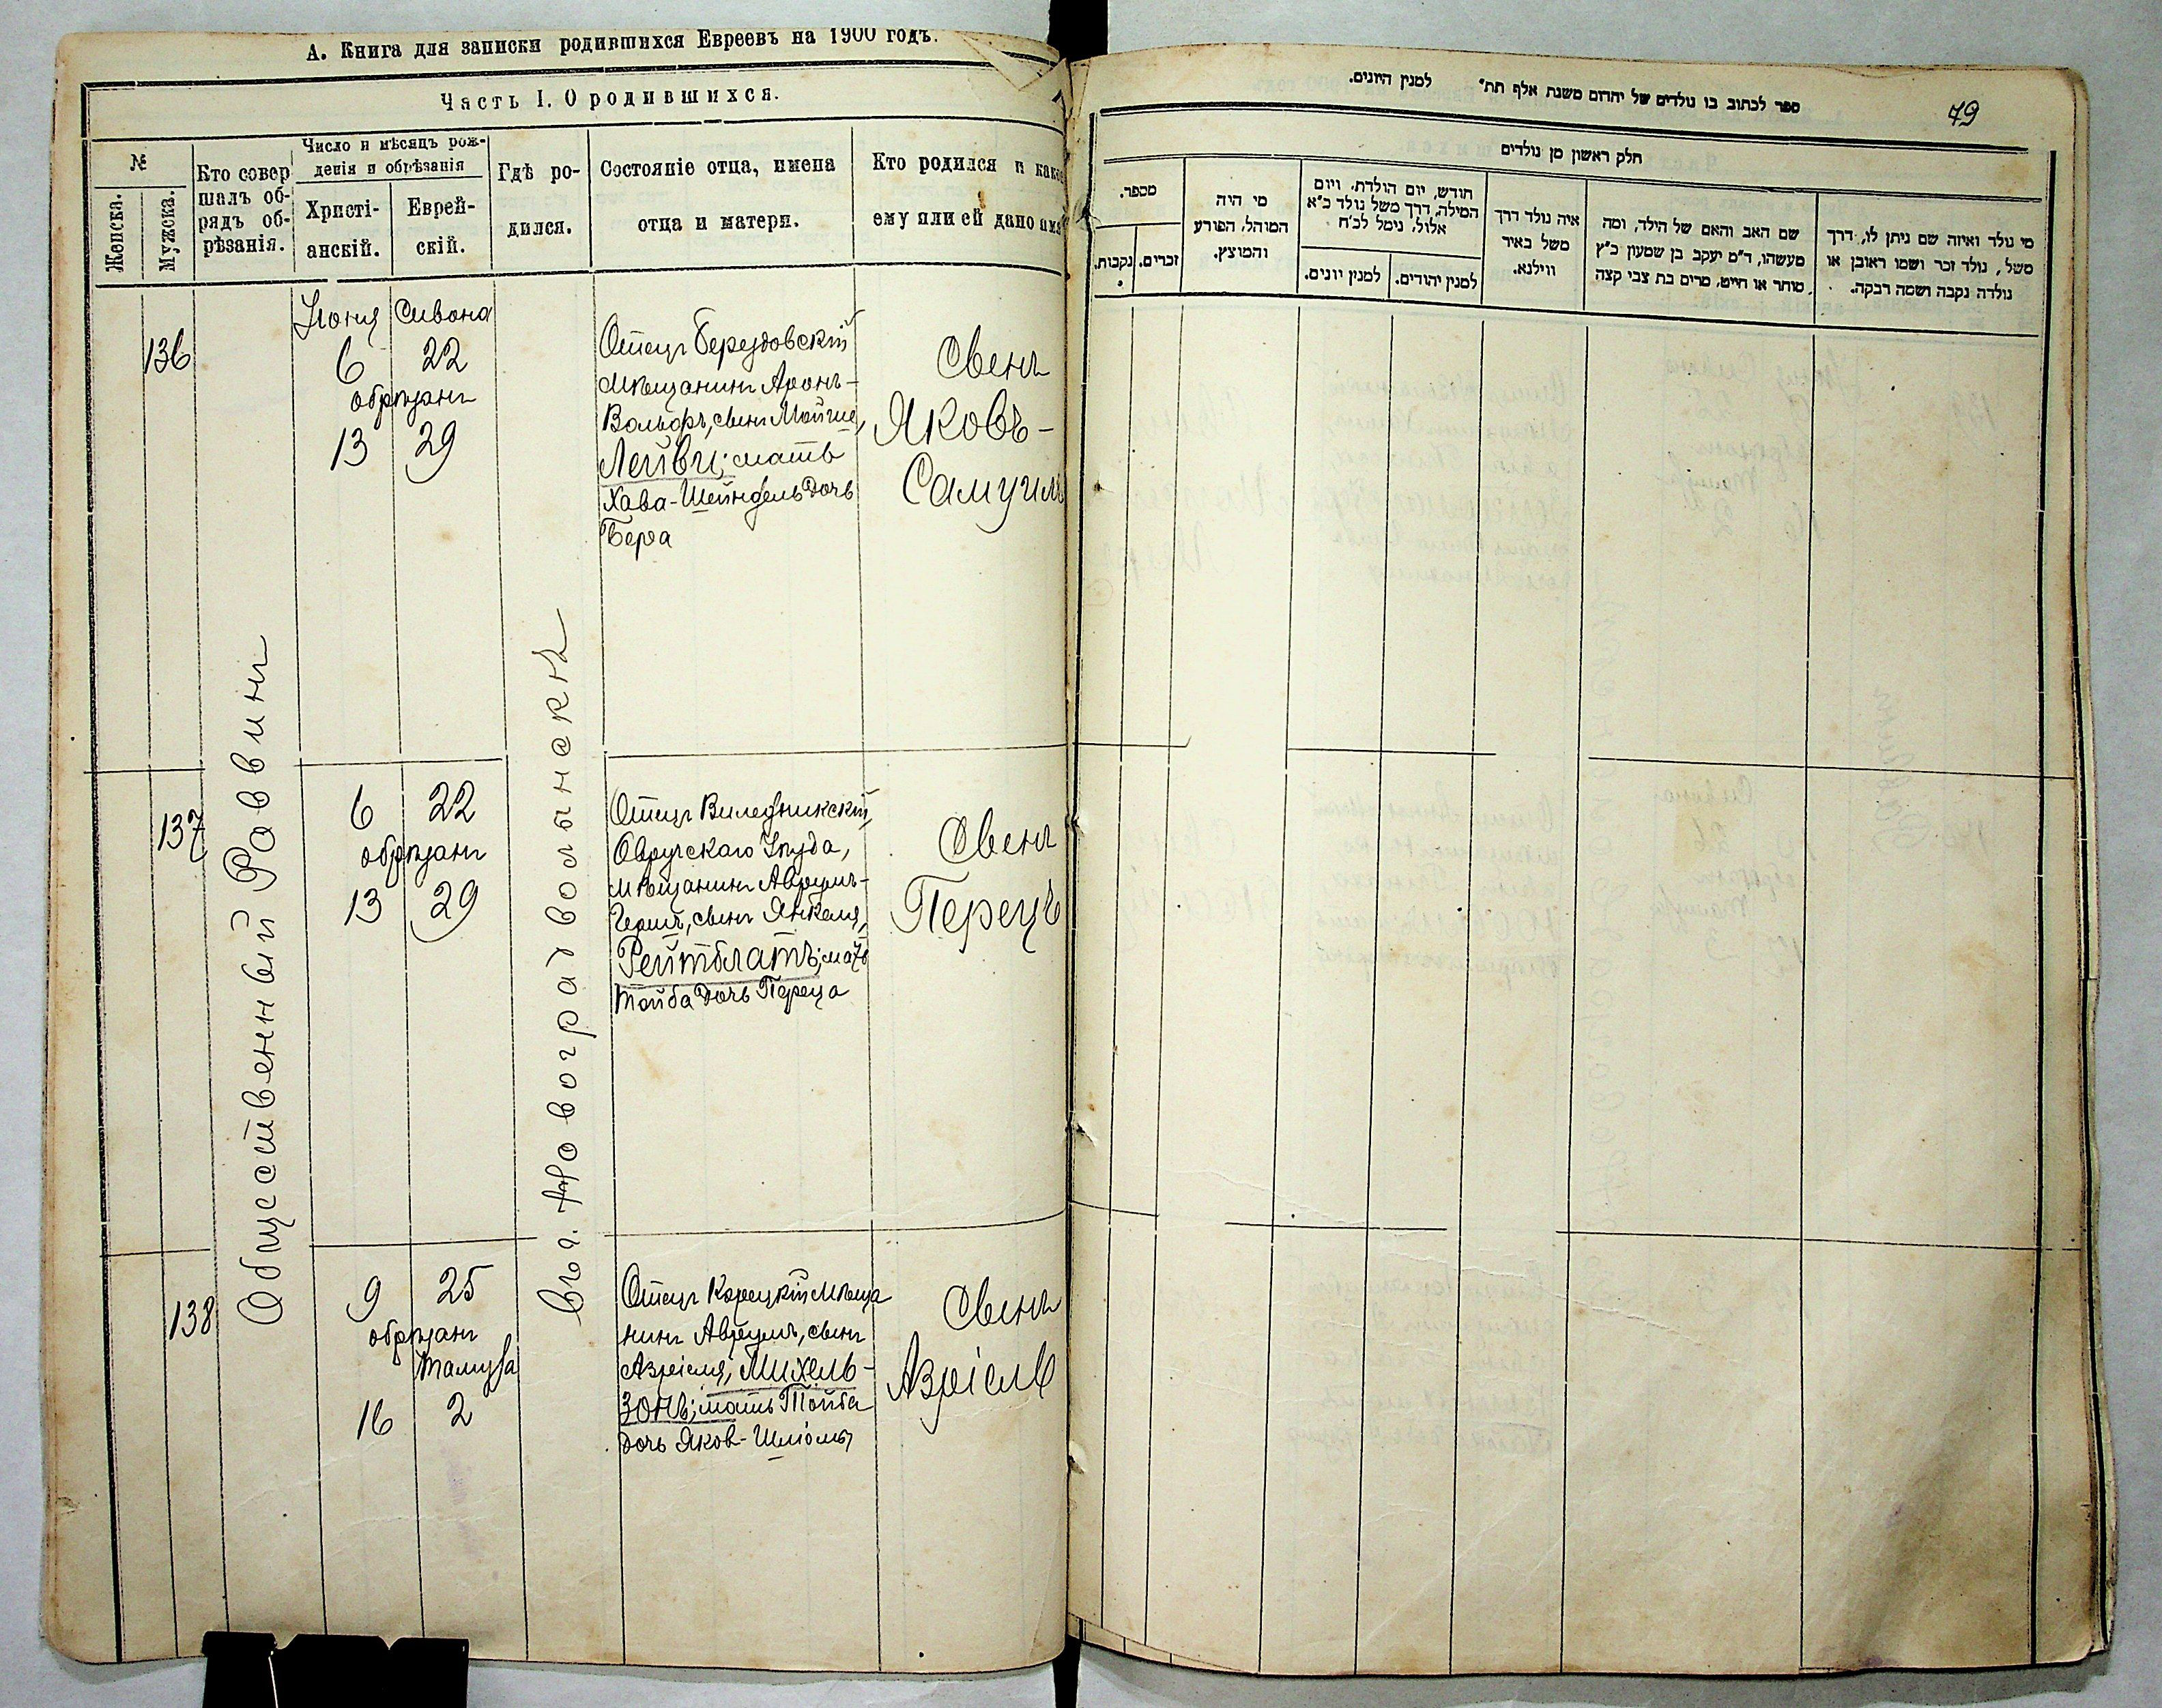 А. Книга для записки родившихся Евреевъ на 1900 годъ.
Часть I. О родившихся.
№
Женска.
Мужска.
Кто совер
шалъ об-
рядъ об-
рѣзанія.
Число и мѣсяцъ рож-
денія и обрѣзанія
Христі-
анскій.
Еврей-
скій.
Гдѣ ро-
дился.
Состояніе отца, имена
отца и матери.
Кто родился и какое
ему или ей дано имя
Общественный Раввинъ
Въ г. Новоградволынскѣ
136
Іюня Сивона
6 22
обрѣзанъ
13 29
Отецъ Берездовскій
мѣщанинъ Аронъ-
Вольфъ, сынъ Мойше,
Лейвы; мать
Хава-Шейндель дочь
Бера
Сынъ
Яковъ-
Самуилъ
137
6 22
обрѣзанъ
13 29
Отецъ Виледникскій,
Овручскаго Уѣзда,
мѣщанинъ Аврумъ-
Гершъ, сынъ Янкеля,
Рейтблатъ; мать
Тойба дочь Переца
Сынъ
Перецъ
138
9 25
обрѣзанъ
Тамуза
16 2
Отецъ Корецкій мѣща
нинъ Аврумъ, сынъ
Азріеля, Михель-
зонъ; мать Тойба
дочь Яков-Шліомы
Сынъ
Азріель
ספר לכתוב בו נולדים של יהודים משנת אלף תת״ למנין היונים.
79
חלק ראשון מן נולדים
מספר.
נקבות.
זכרים.
מי היה
המוהל, הפורע
והמוצץ.
חודש, יום הולדת, ויום
המילה, דרך משל נולד כ״א
אלול, נימל לכ״ח
למנין יונים.
למנין יהודים.
איה נולד דרך
משל באיר
ווילנא.
שם האב והאם של הילד, ומה
מעשהו, ד״מ יעקב בן שמעון כ״ץ
סוחר או חייט, מרים בת צבי קצה
מי נולד ואיזה שם ניתן לו, דרך
משל, נולד זכר ושמו ראובן או
נולדה נקבה ושמה רבקה.